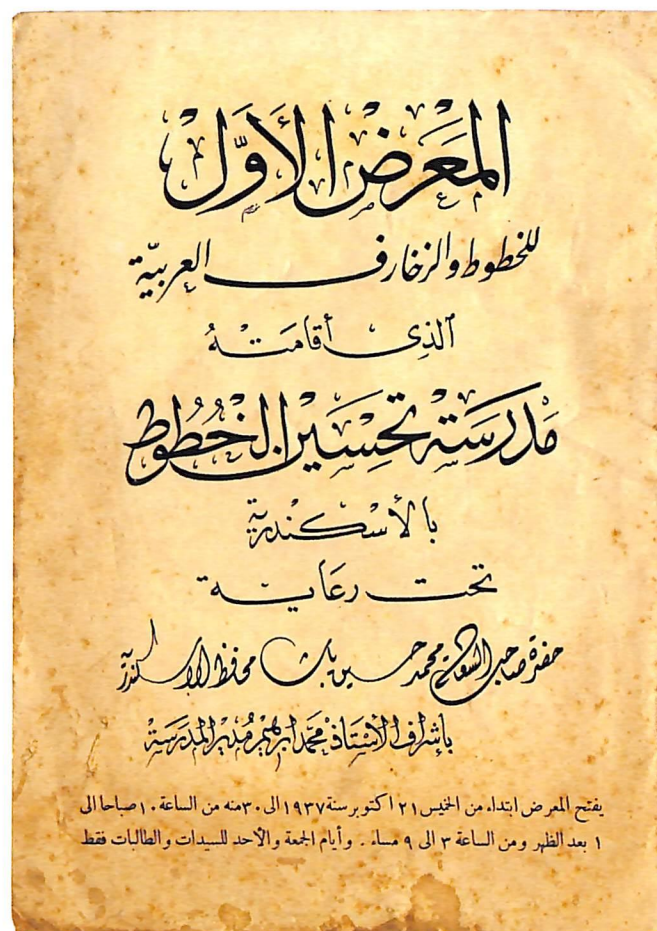 المَعْرَض الأَوَّل
للخطوط والزخارف العربيّة
الذي أقامَتْهُ
مَدْرَسَة تحسِين الخُطُوط
بالأسْكندرية
تحت رعَاية
حضرة صاحب السعادة محمد حسين باشا محافظ الاسكندرية
بإشراف الأستاذ محمّد ابرهيم مُدير المدرَسَة
يفتح المعرض ابتداء من الخميس ٢١ اكتوبر سنة ١٩٣٧ الى ٣٠ منه من الساعة ١٠ صباحا الى
١ بعد الظهر ومن الساعة ٣ الى ٩ مساء . وأيام الجمعة والأحد للسيدات والطالبات فقط